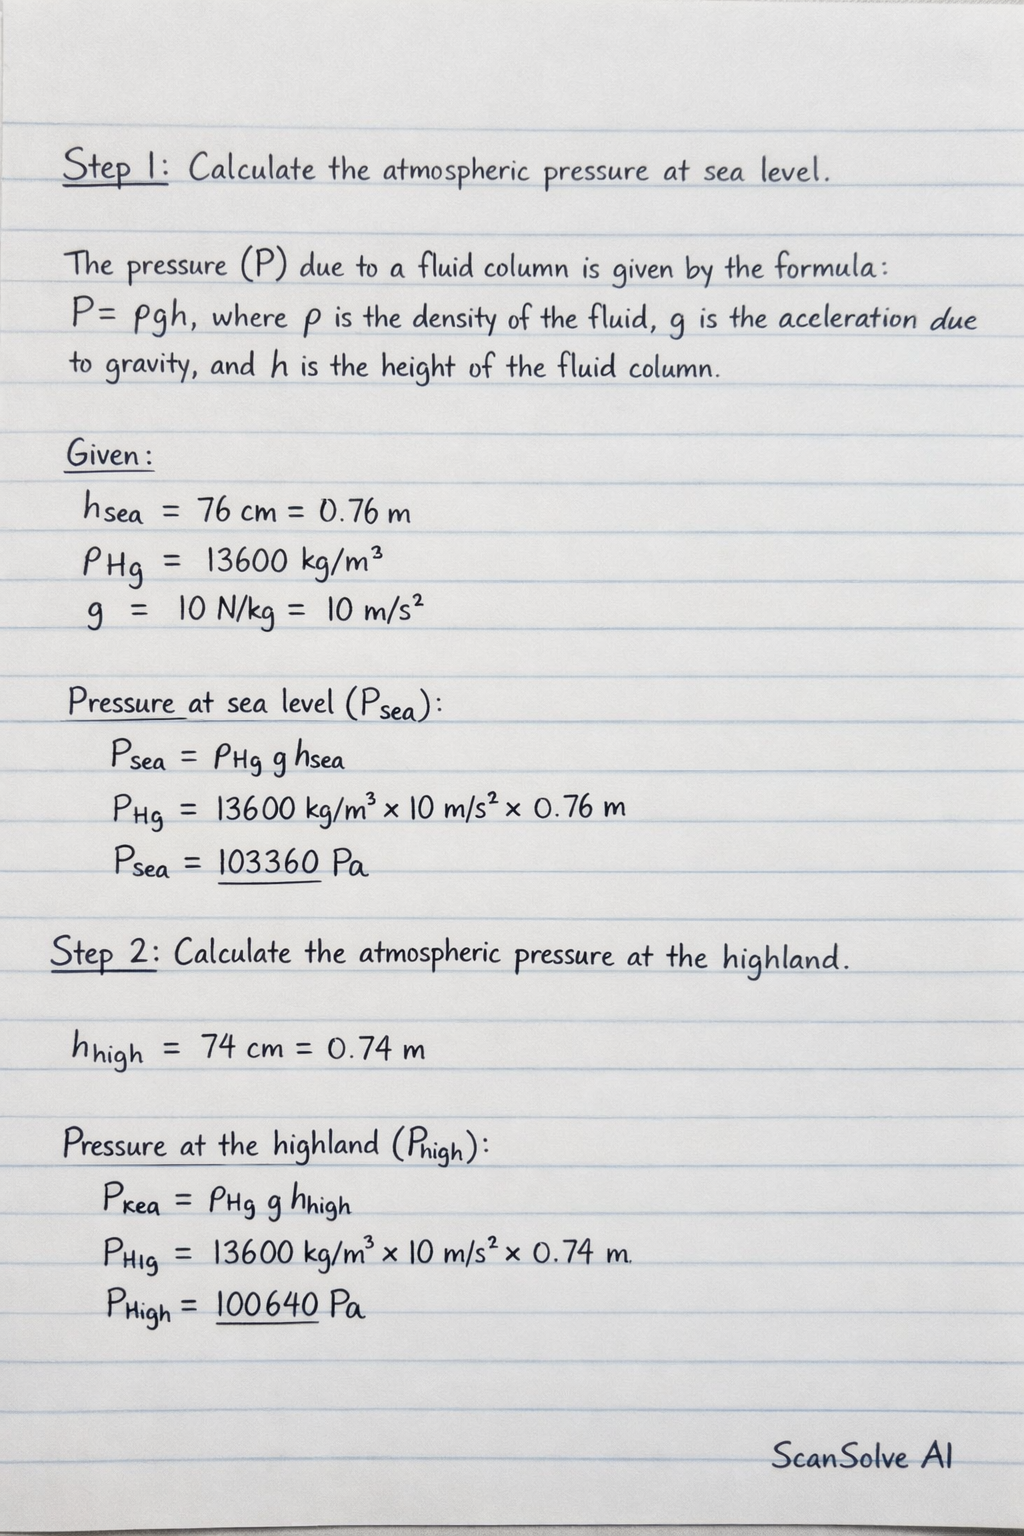 Step 1: Calculate the atmospheric pressure at sea level.
The pressure (P) due to a fluid column is given by the formula:
P= ρgh, where ρ is the density of the fluid, g is the aceleration due
to gravity, and h is the height of the fluid column.
Given:
hsea = 76 cm = 0.76 m
ρHg = 13600 kg/m³
g = 10 N/kg = 10 m/s²
Pressure at sea level (Psea):
Psea = ρHg g hsea
PHg = 13600 kg/m³ × 10 m/s² × 0.76 m
Psea = 103360 Pa
Step 2: Calculate the atmospheric pressure at the highland.
hhigh = 74 cm = 0.74 m
Pressure at the highland (Phigh):
Pkea = ρHg g hhigh
PHıg = 13600 kg/m³ × 10 m/s² × 0.74 m.
PHigh = 100640 Pa
ScanSolve AI